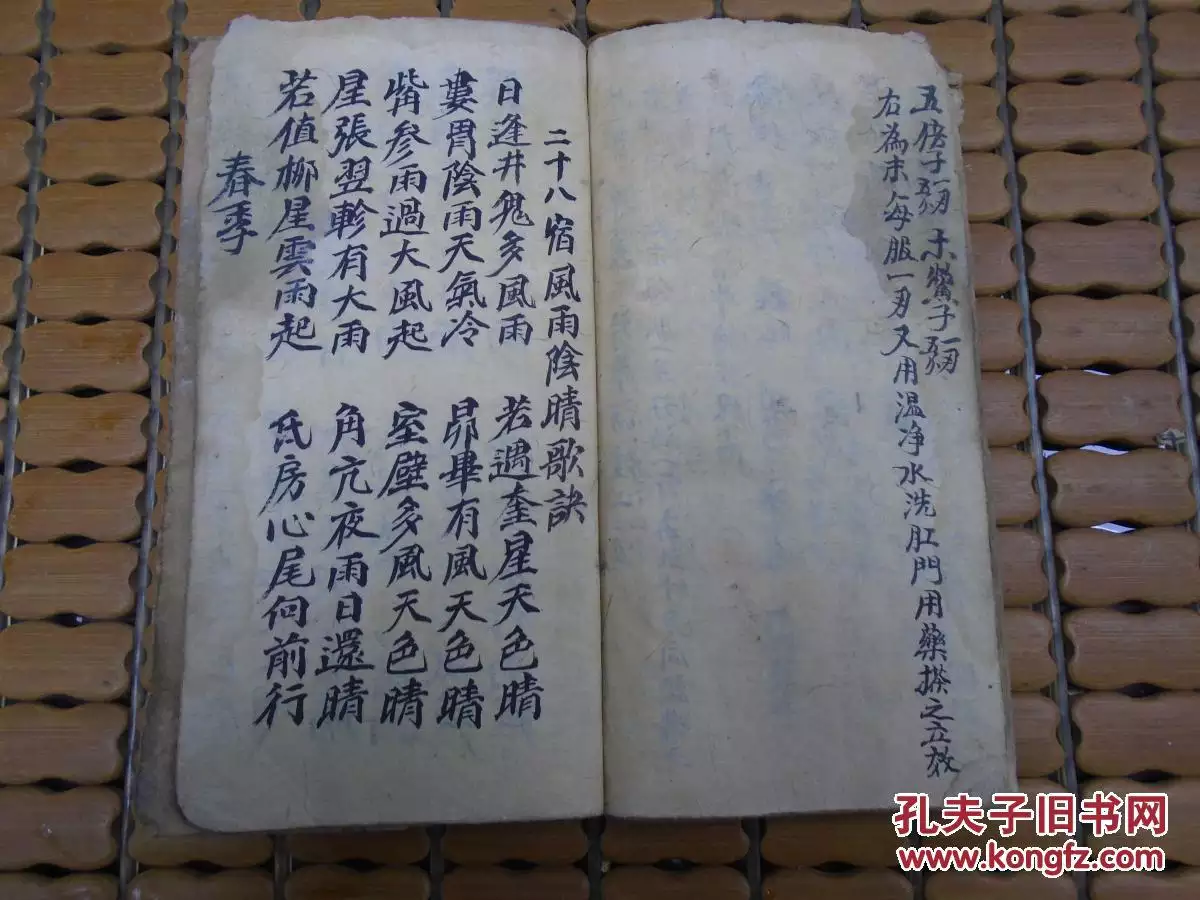 五倍子 木鱉子
右為末每服一 又用温净水洗肛門用藥搽之立效
二十八宿風雨陰晴歌訣
日逢井鬼多風雨 若遇奎星天色晴
婁胃陰雨天氣冷 昴畢有風天色晴
觜参雨過大風起 室壁多風天色晴
星張翌軫有大雨 角亢夜雨日還晴
若值柳星雲雨起 氐房心尾向前行
春季
孔夫子旧书网
www.kongfz.com